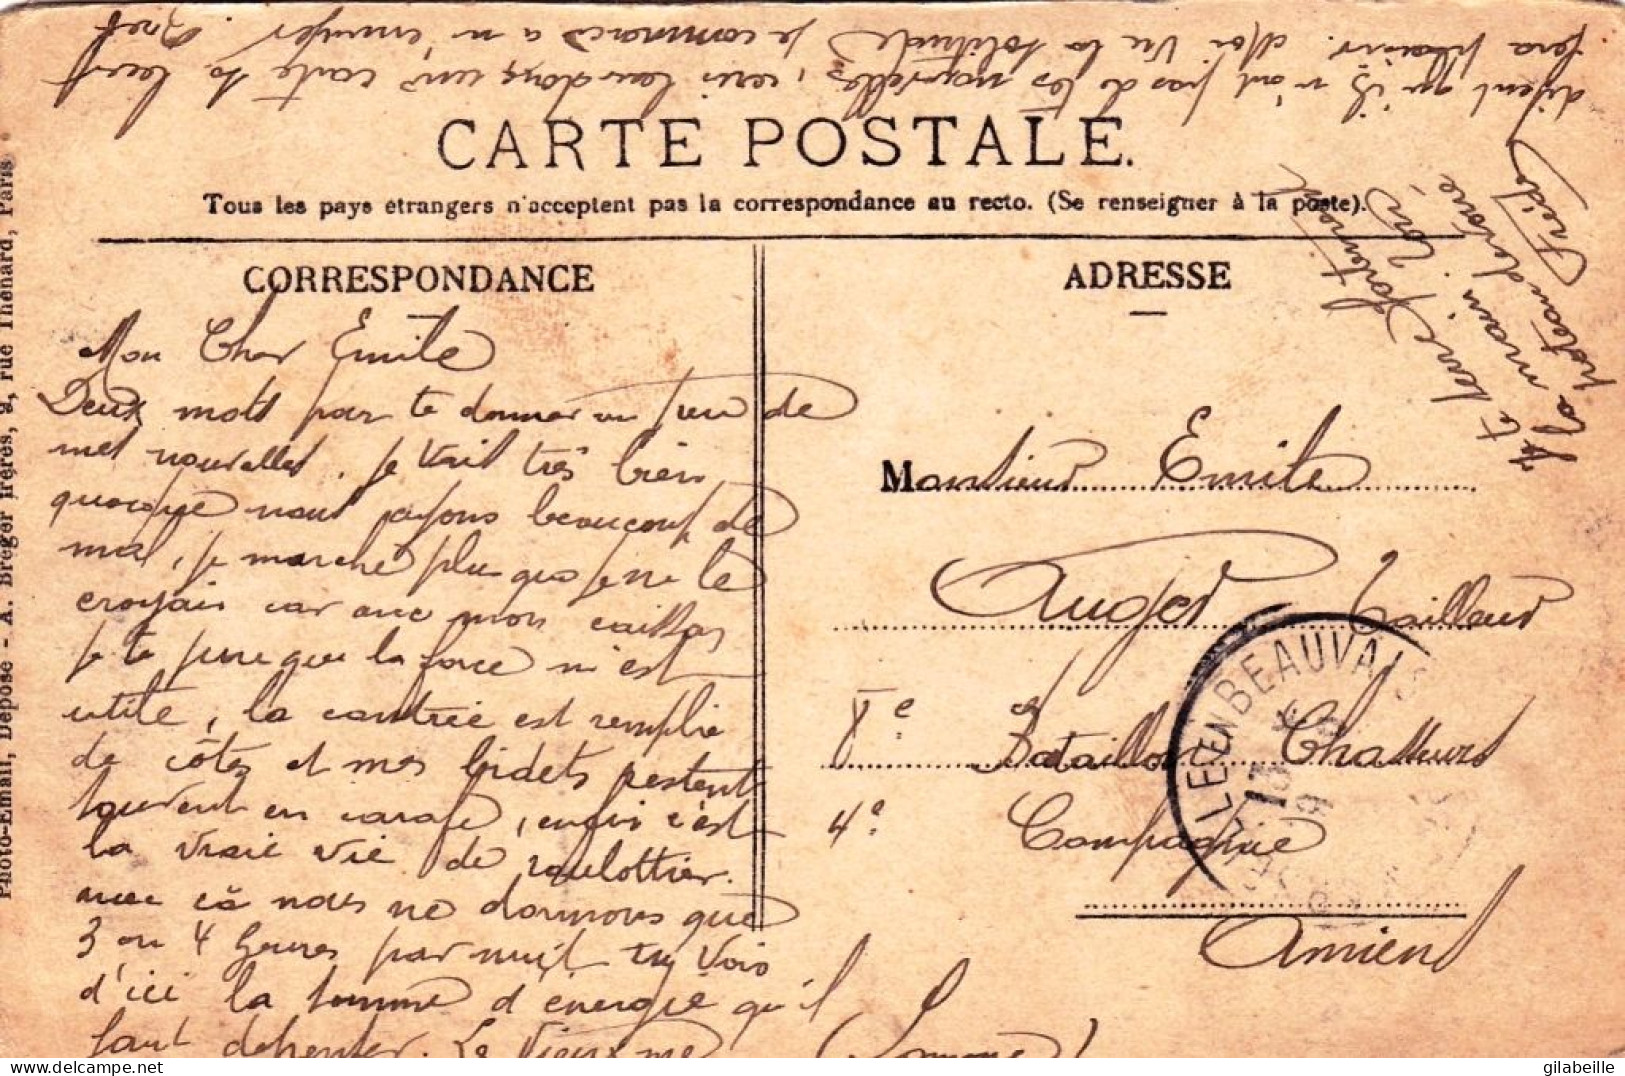 CARTE POSTALE.
Tous les pays étrangers n'acceptent pas la correspondance au recto. (Se renseigner à la poste).
CORRESPONDANCE
Mon Cher Emile
Deux mots par te donner un peu de
mes nouvelles. Je vais très bien
quoique nous ayons beaucoup de
mal, je marche plus que je ne le
croyais car avec mon
je te jure que la force n'est
utile, la contrée est remplie
de côtes et mes bidets restent
souvent en carafe, enfin c'est
la vraie vie de roulottier.
avec ça nous ne dormons que
3 ou 4 heures par nuit tu vois
d'ici la somme d'énergie qu'il
faut dépenser. Le vieux me
disent qu'ils n'ont pas de tes nouvelles, une carte te
fera plaisir. Moi vu la solitude je commence a m'ennuyer. Bref
Je te serre
la main
ADRESSE
Monsieur Emile
Auger Tailleur
8e Bataillon Chasseurs
4e Compagnie
Amiens
(Somme)
EN BEAUVAIS
13
Photo-Email, Déposé - A. Breger frères, 9, rue Thénard, Paris
gilabeille